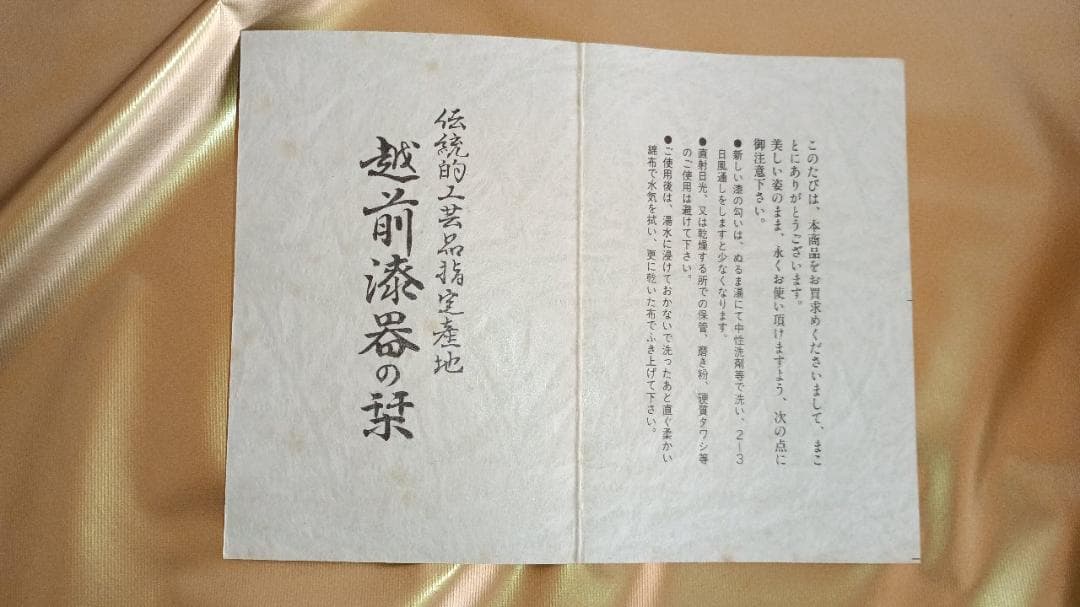 このたびは、本商品をお買求めくださいまして、まこ
とにありがとうございます。
美しい姿のまま、永くお使い頂けますよう、次の点に
御注意下さい。
●新しい漆の匂いは、ぬるま湯にて中性洗剤等で洗い、2―3
日風通しをしますと少なくなります。
●直射日光、又は乾燥する所での保管、磨き粉、硬質タワシ等
のご使用は避けて下さい。
●ご使用後は、湯水に浸けておかないで洗ったあと直ぐ柔かい
綿布で水気を拭い、更に乾いた布でふき上げて下さい。
伝統的工芸品指定産地
越前漆器の栞